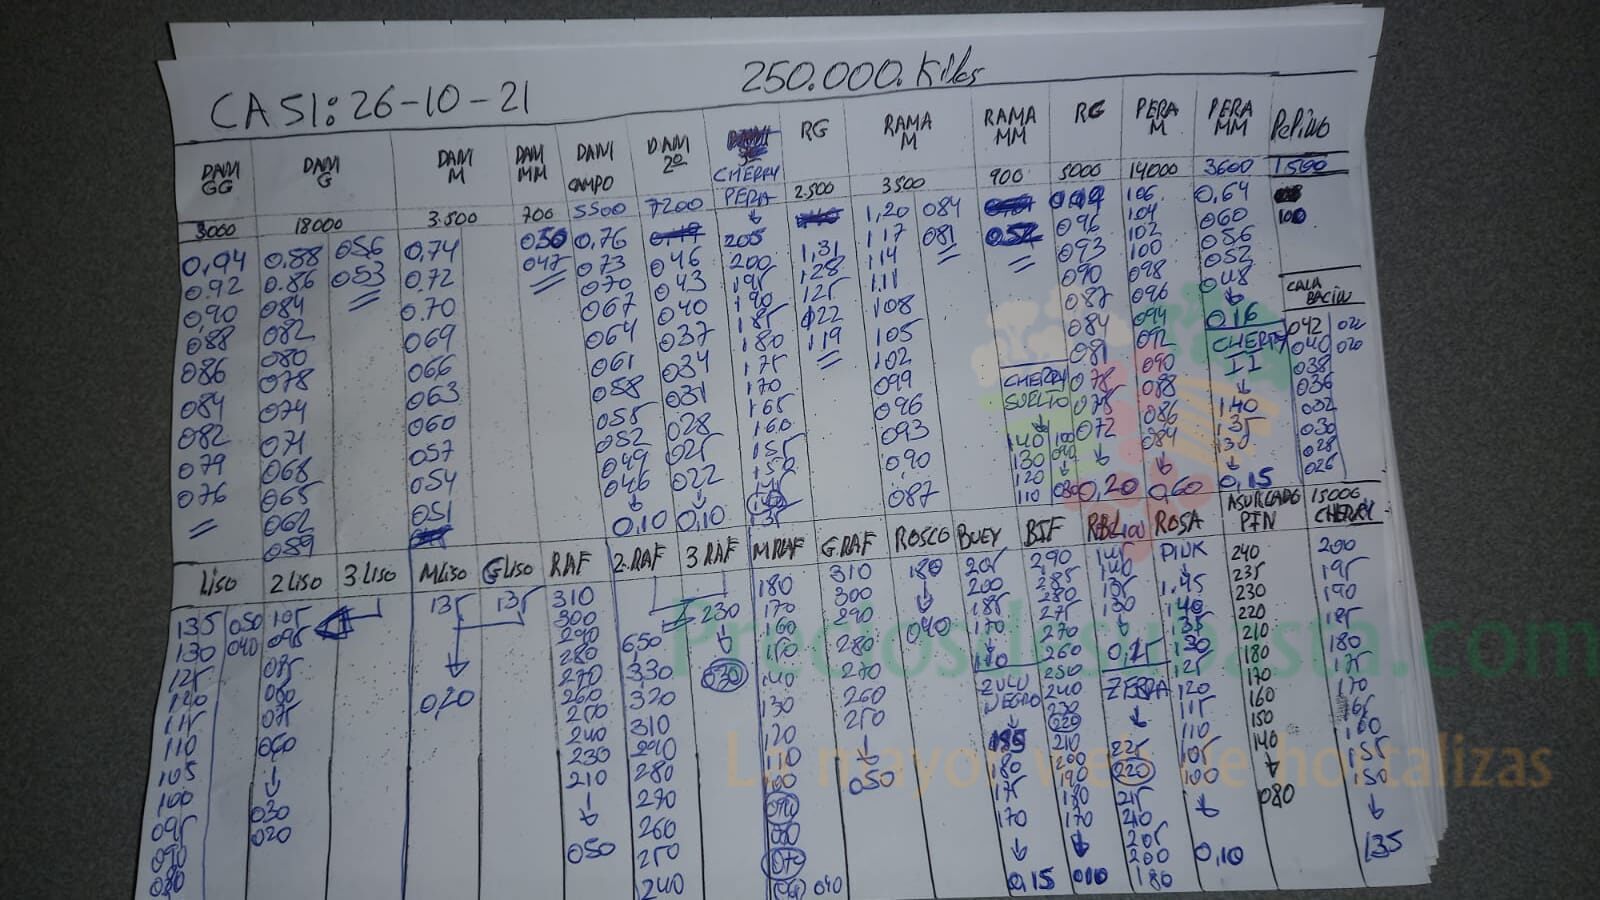 CASI: 26-10-21 250.000. Kilos
DAM GG DAM G DAM M DAM MM DAM CAMPO DAM 2º CHERRY PERA RG RAMA M RAMA MM RG PERA M PERA MM PePino
3000 18000 3.500 700 5500 7200 2.500 3500 900 5000 14000 3600 1500
0,94 0.88 056 0,74 050 0,76 205 1,20 084 052 106 0,64 100
0.92 0.86 053 0,72 047 073 046 200 1,31 117 081 096 104 060
0,90 084 0.70 070 043 195 128 114 093 102 056
088 082 069 067 040 190 125 111 090 100 052
086 080 066 064 037 185 122 108 087 098 048 CALABACIN
084 078 063 061 034 180 119 105 084 096 0,16 042 022
082 074 060 058 031 175 102 081 094 CHERRY II 040 020
079 071 057 055 028 170 099 CHERRY SUELTO 078 092 140 038
076 068 054 052 025 165 096 140 100 075 090 135 036
065 051 049 022 160 093 130 090 072 088 130 032
062 046 0,10 155 090 120 0,20 086 0,15 030
059 0,10 150 087 110 080 084 028
140 0,60 026
135
LISO 2 LISO 3 LISO M LISO G LISO RAF 2.RAF 3 RAF M RAF G.RAF ROSCO BUEY BIF ROSA ASURCADO PIN 15000 CHERRY
135 050 105 135 135 310 650 230 180 310 180 205 290 145 PINK 240 200
130 040 095 0,20 300 330 030 170 300 040 200 285 140 1.45 235 195
125 085 290 320 160 290 185 280 135 140 230 190
120 080 280 310 150 280 170 275 130 135 220 185
115 075 270 290 140 270 110 270 0,15 130 210 180
110 060 260 280 130 260 ZULU NEGRO 260 ZEBRA 125 180 175
105 030 250 270 120 250 185 250 225 120 170 170
100 020 240 260 110 050 180 240 220 115 160 165
095 230 250 100 175 230 215 110 150 160
090 210 240 090 170 220 210 105 140 155
080 050 080 0,15 210 205 100 080 150
070 040 200 200 0,10 135
190 180
180
170
010
Preciosdesubasta.com
La mayor web de hortalizas